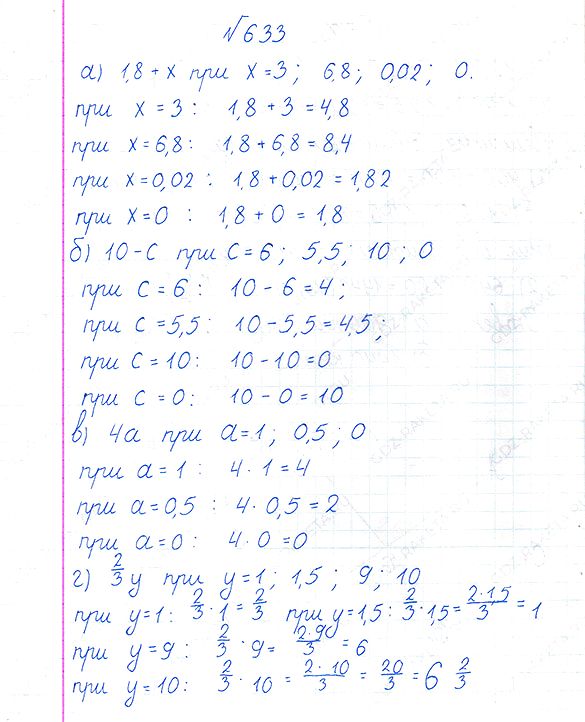 №633
а) 1,8 + x при x = 3; 6,8; 0,02; 0.
при x = 3: 1,8 + 3 = 4,8
при x = 6,8: 1,8 + 6,8 = 8,4
при x = 0,02: 1,8 + 0,02 = 1,82
при x = 0: 1,8 + 0 = 1,8
б) 10 - c при c = 6; 5,5; 10; 0
при c = 6: 10 - 6 = 4;
при c = 5,5: 10 - 5,5 = 4,5;
при c = 10: 10 - 10 = 0
при c = 0: 10 - 0 = 10
в) 4a при a = 1; 0,5; 0
при a = 1: 4 · 1 = 4
при a = 0,5: 4 · 0,5 = 2
при a = 0: 4 · 0 = 0
г) 2/3 y при y = 1; 1,5; 9; 10
при y = 1: 2/3 · 1 = 2/3 при y = 1,5: 2/3 · 1,5 = 2·1,5/3 = 1
при y = 9: 2/3 · 9 = 2·9/3 = 6
при y = 10: 2/3 · 10 = 2·10/3 = 20/3 = 6 2/3